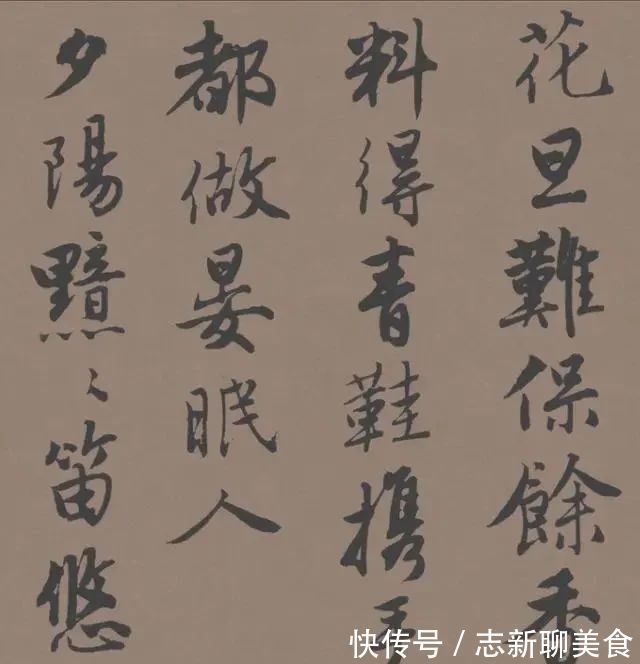 花旦難保餘
料得青鞋携手
都做晏眠人
夕陽黯〻笛悠
快传号 / 志新聊美食